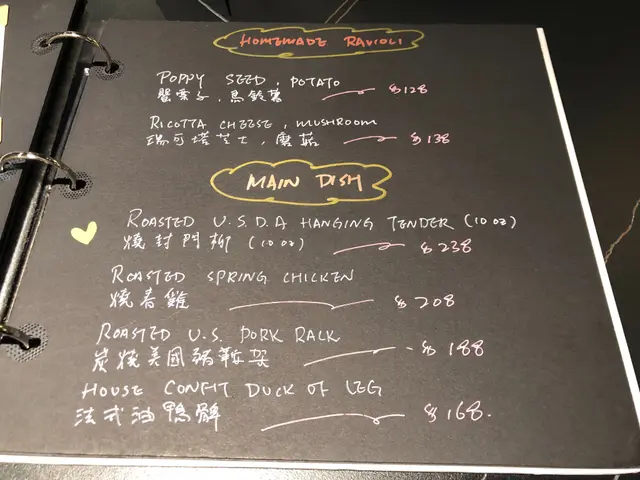 HOMEMADE RAVIOLI
POPPY SEED, POTATO
罌粟子,馬鈴薯 $128
RICOTTA CHEESE, MUSHROOM
瑞可塔芝士,蘑菇 $138
MAIN DISH
ROASTED U.S.D.A HANGING TENDER (10 oz)
燒封門柳 (10 oz) $238
ROASTED SPRING CHICKEN
燒春雞 $208
ROASTED U.S. PORK RACK
炭燒美國豬鞍架 $188
HOUSE CONFIT DUCK OF LEG
法式油鴨髀 $168.